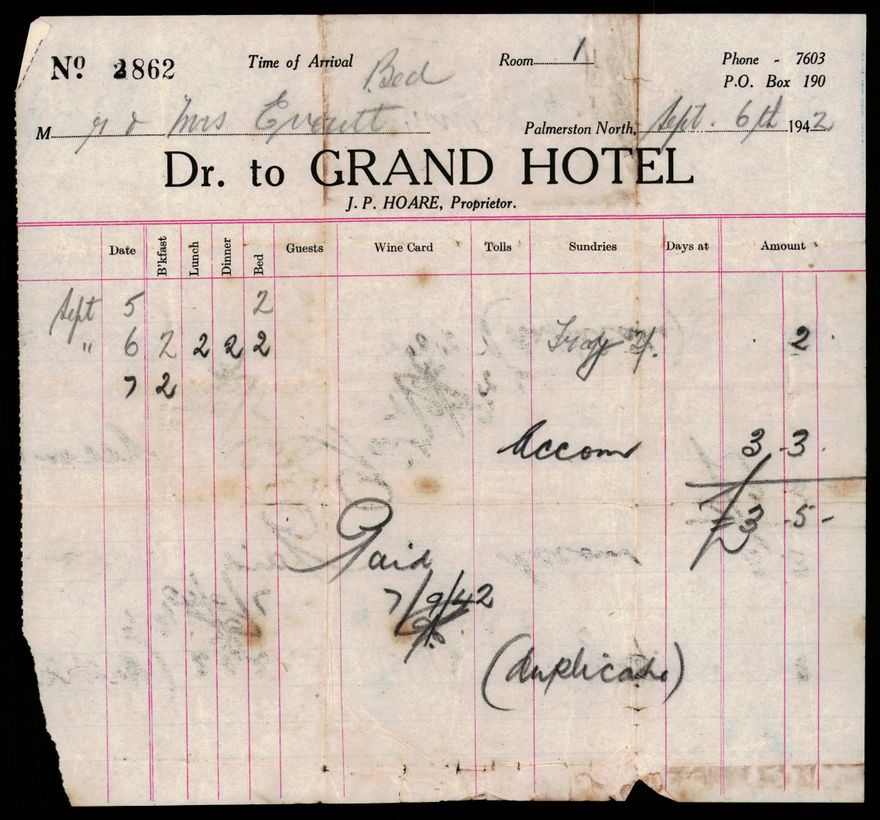 Nº 2862 Time of Arrival Bed Room 1 Phone - 7603
P.O. Box 190
M r & Mrs Everitt Palmerston North, Sept. 6th 1942
Dr. to GRAND HOTEL
J. P. HOARE, Proprietor.
Date B'kfast Lunch Dinner Bed Guests Wine Card Tolls Sundries Days at Amount
Sept 5 2
" 6 2 2 2 2 Tray 2/. 2
7 2
Accom 3 - 3
£3 - 5 -
Paid
7/9/42
(duplicate)